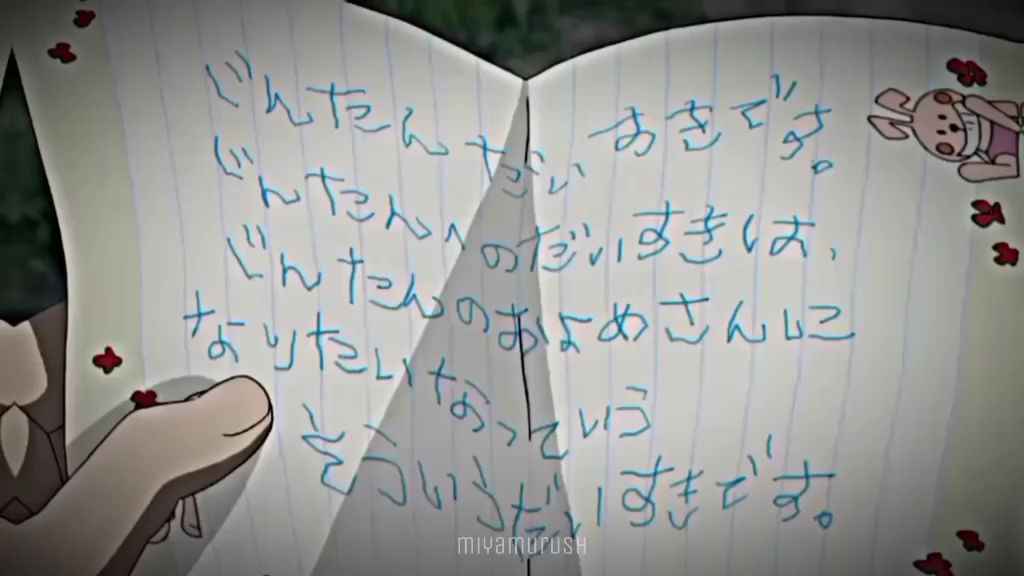 じんたん だいすきです。
じんたんへのだいすきは、
じんたんのおよめさんに
なりたいなっていう
そういうだいすきです。
MIYAMURUSH